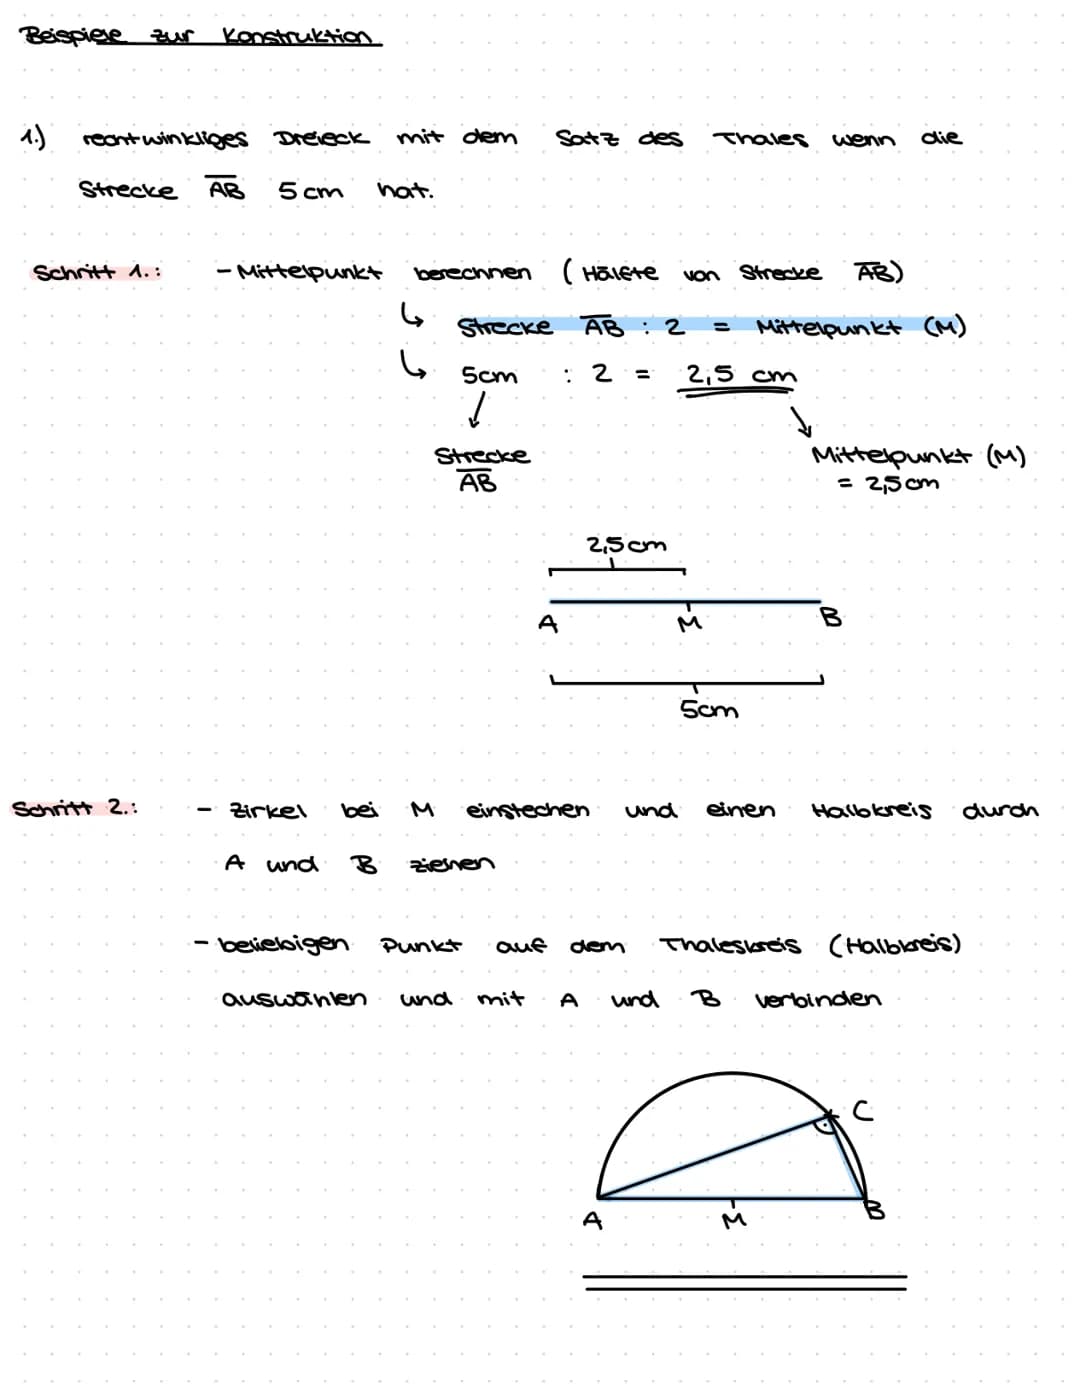 Beispiele zur Konstruktion
1.) rechtwinkliges Dreieck mit dem Satz des Thales wenn die
Strecke AB 5cm hat.
Schritt 1.: - Mittelpunkt berechnen (Hälfte von Strecke AB)
↳ Strecke AB : 2 = Mittelpunkt (M)
↳ 5cm : 2 = 2,5 cm
Strecke
AB
Mittelpunkt (M)
= 2,5cm
2,5cm
A M B
5cm
Schritt 2.: - Zirkel bei M einstechen und einen Halbkreis durch
A und B ziehen
- beliebigen Punkt auf dem Thaleskreis (Halbkreis)
auswählen und mit A und B verbinden
C
A M B